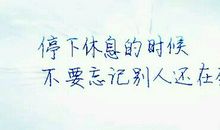 停下休息的时候
不要忘记别人还在